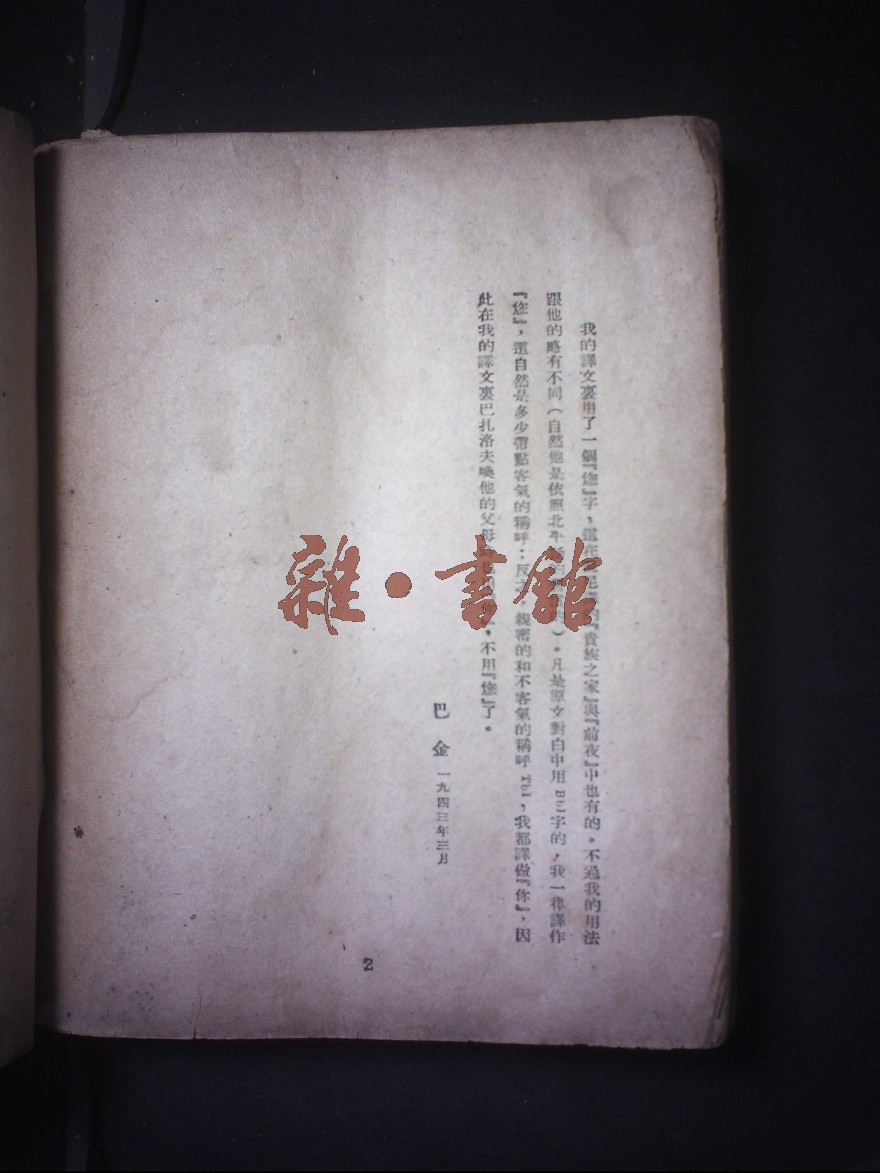 我的譯文裏用了一個『您』字，這在 的『貴族之家』與『前夜』中也有的。不過我的用法
跟他的略有不同（自然他是依照北平 ）。凡是原文對白中用 Вы 字的，我一律譯作
『您』，這自然是多少帶點客氣的稱呼；反之，親密的和不客氣的稱呼 Ты，我都譯做『你』，因
此在我的譯文裏巴扎洛夫喚他的父母 ，不用『您』了。
巴金 一九四三年三月
2
雜·書館